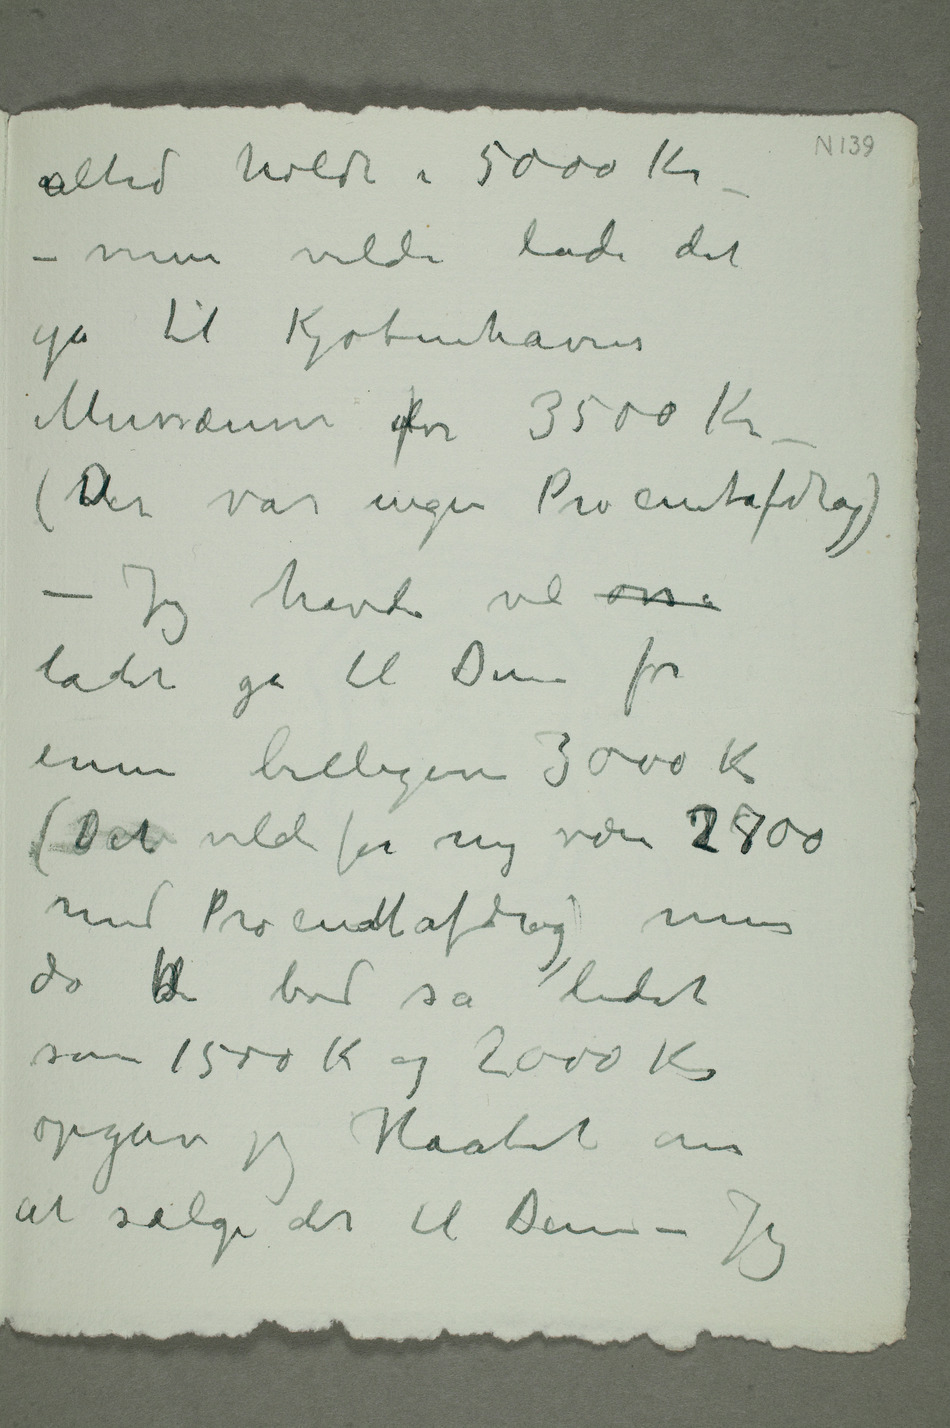 N 139
altid holdt i 5000 Kr –
– men vilde lade det
gå til Kjøbenhavns
Musæum for 3500 Kr –
(Der var ingen Procentafdrag)
– Jeg havde vel osså
ladet gå til Dem for
ennu billigere 3000 Kr
(Det vilde for mig være 2700
med Procentafdrag) men
da De bød så lidet
som 1500 K og 2000 Kr
opgav jeg Haabet om
at sælge det til Dem – Jeg